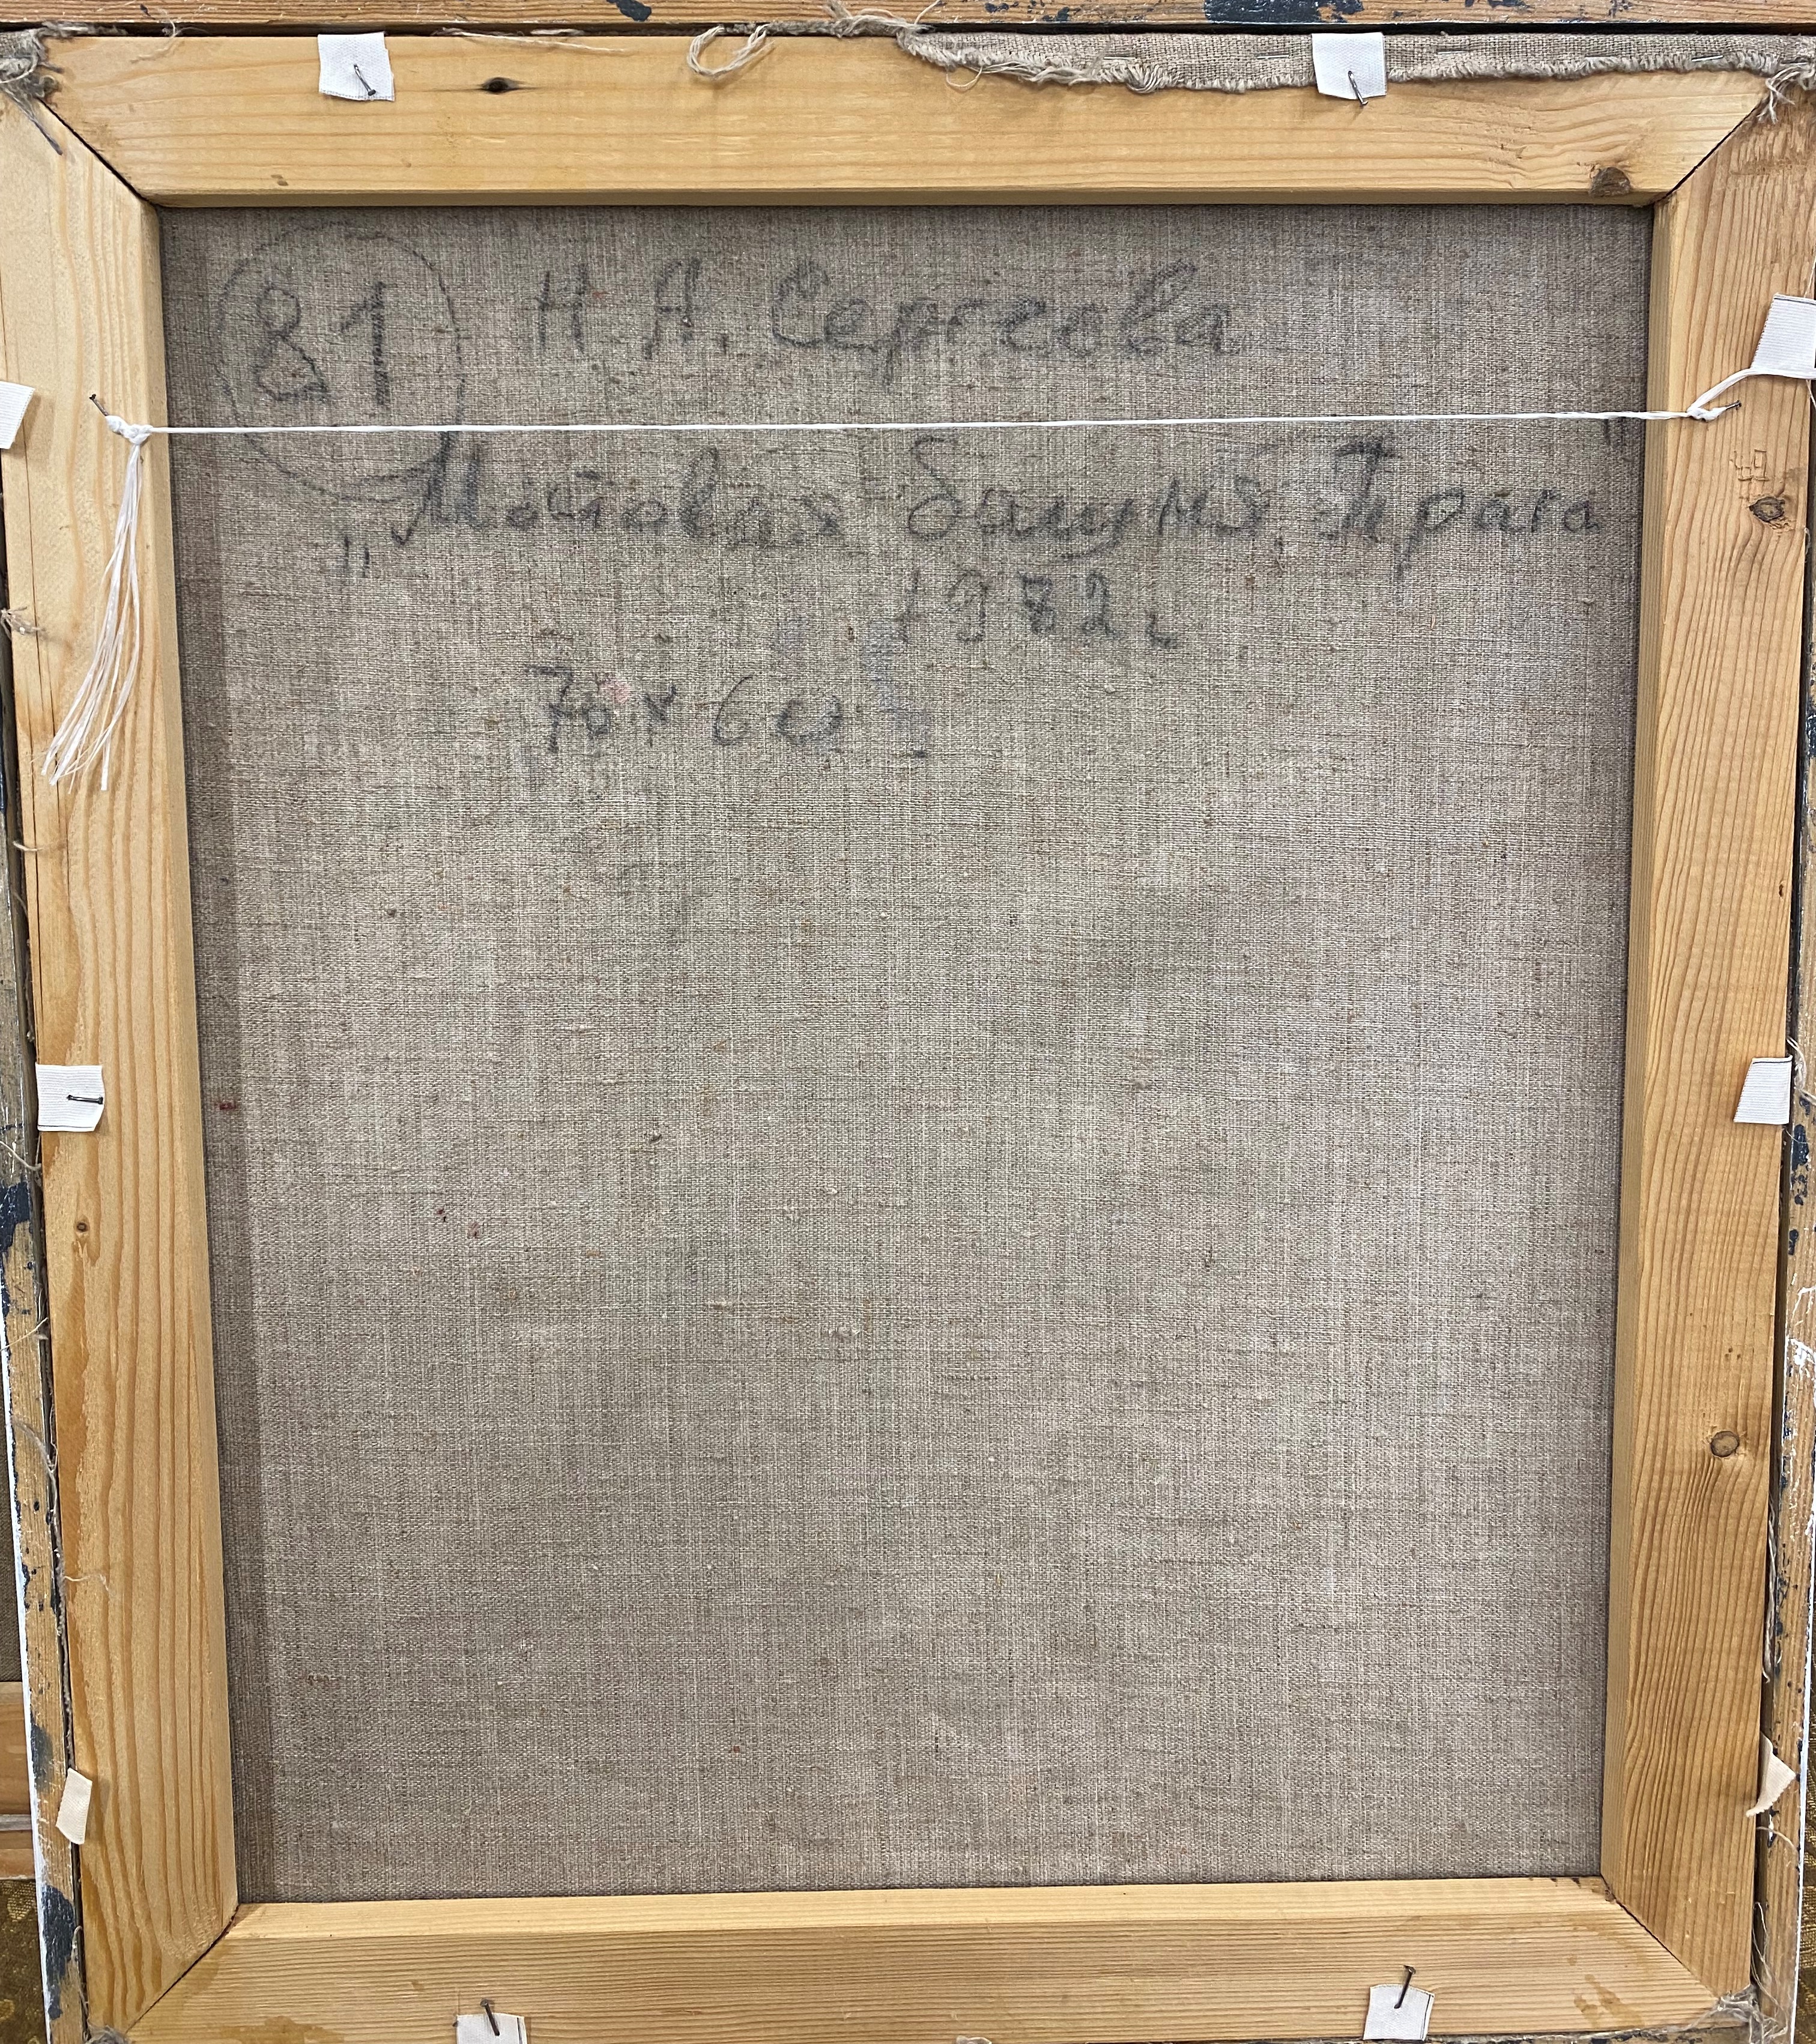 81 Н. А. Сергеева
„Мостовая башня, Прага"
1982 г
70 х 60